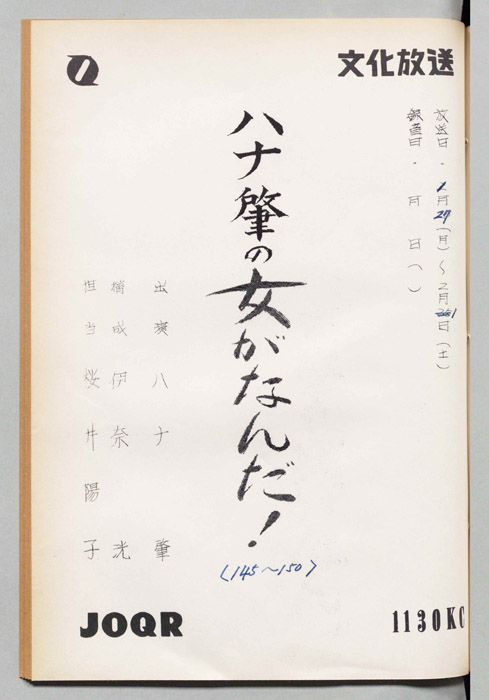 文化放送
放送日・1月27(月)〜2月1日(土)
録音日・ 月 日( )
ハナ肇の女がなんだ!
〈145〜150〉
出演 ハナ肇
構成 伊奈 洸
担当 桜井陽子
JOQR
1130KC